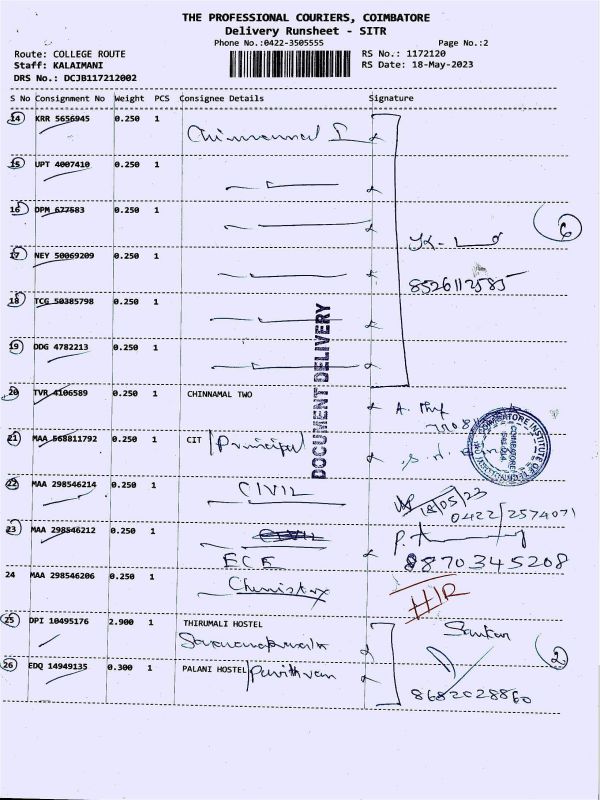 THE PROFESSIONAL COURIERS, COIMBATORE
Delivery Runsheet - SITR
Phone No.:0422-3505555 Page No.:2
Route: COLLEGE ROUTE RS No.: 1172120
Staff: KALAIMANI RS Date: 18-May-2023
DRS No.: DCJB117212002
S No Consignment No Weight PCS Consignee Details Signature
14 KRR 5656945 0.250 1
15 UPT 4007410 0.250 1
16 DPM 677583 0.250 1
6
17 NEY 50069209 0.250 1
8526112585
18 TCG 50385798 0.250 1
19 DDG 4782213 0.250 1
DOCUMENT DELIVERY
20 TVR 4106589 0.250 1 CHINNAMAL TWO
21 MAA 568811792 0.250 1 CIT Principal
COIMBATORE INSTITUTE OF
22 MAA 298546214 0.250 1 CIVIL
18/05/23
0422/2574071
23 MAA 298546212 0.250 1 CIVIL
ECE
8870345208
24 MAA 298546206 0.250 1 Chemistry
HIR
25 DPI 10495176 2.900 1 THIRUMALI HOSTEL
2
26 EDQ 14949135 0.300 1 PALANI HOSTEL Pavithran
8682028860